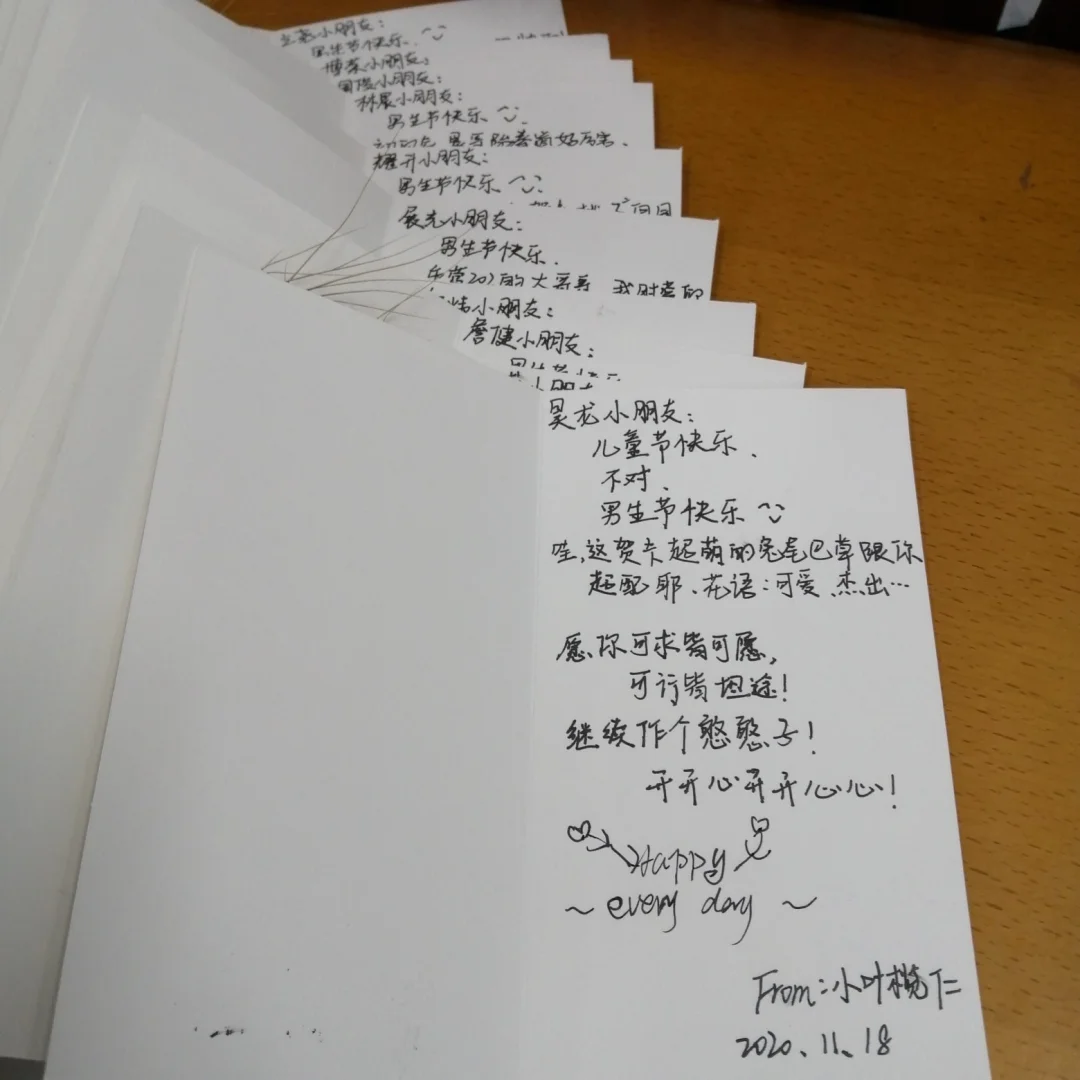 小朋友：
男生节快乐.
小朋友：
小朋友：
林展小朋友：
男生节快乐
耀升小朋友：
男生节快乐
展先小朋友：
男生节快乐.
的大哥哥
小朋友：
詹健小朋友：
小朋友
昊龙小朋友：
儿童节快乐.
不对.
男生节快乐
哇,这贺卡超萌的兔尾巴草跟你
超配耶.花语:可爱.杰出…
愿你可求皆可愿,
可行皆坦途!
继续作个憨憨子!
开开心开开心心!
Happy
~ every day ~
From:小叶榄仁
2020.11.18